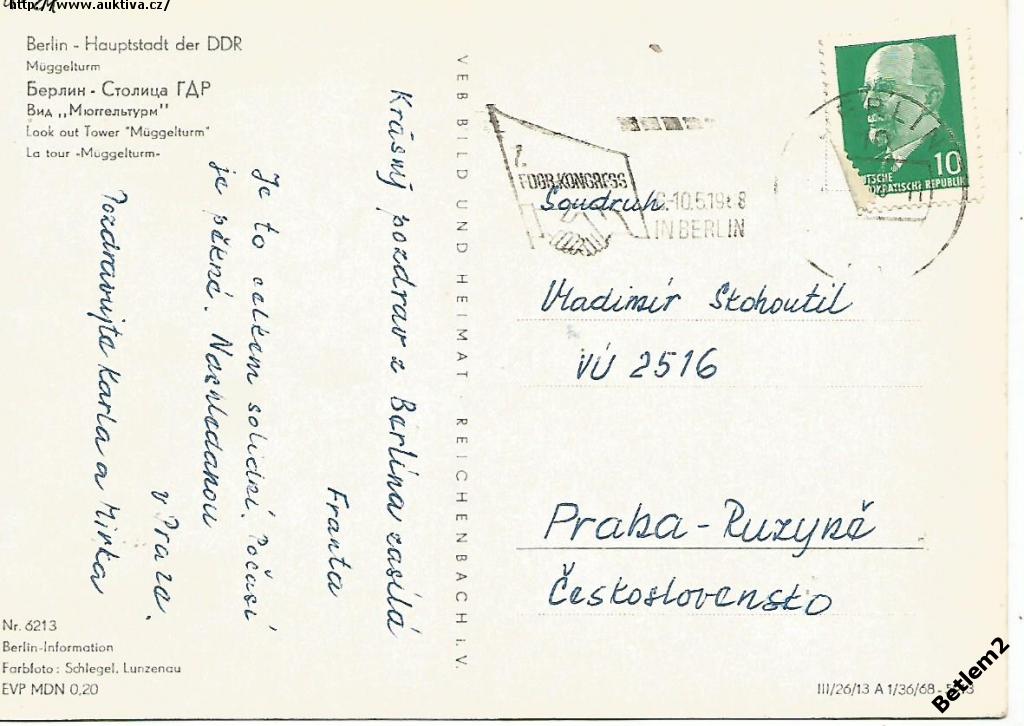 http://www.auktiva.cz/
Berlin - Hauptstadt der DDR
Müggelturm
Берлин - Столица ГДР
Вид „Мюггельтурм"
Look out Tower "Müggelturm"
La tour «Müggelturm»
Krásný pozdrav z Berlína zasílá
Franta
Je to celkem solidní. Počasí
je pěkné. Nashledanou
v Praze.
Pozdravujte Karla a Mirka
Nr. 6213
Berlin-Information
Farbfoto: Schlegel, Lunzenau
EVP MDN 0,20
VEB BILD UND HEIMAT · REICHENBACH i. V.
7.
FDGB-KONGRESS
-10.5.1968
IN BERLIN
BERLIN
10
DEUTSCHE
DEMOKRATISCHE REPUBLIK
Soudruh
Vladimír Skohoutil
VÚ 2516
Praha - Ruzyně
Československo
III/26/13 A 1/36/68 -
Betlem2